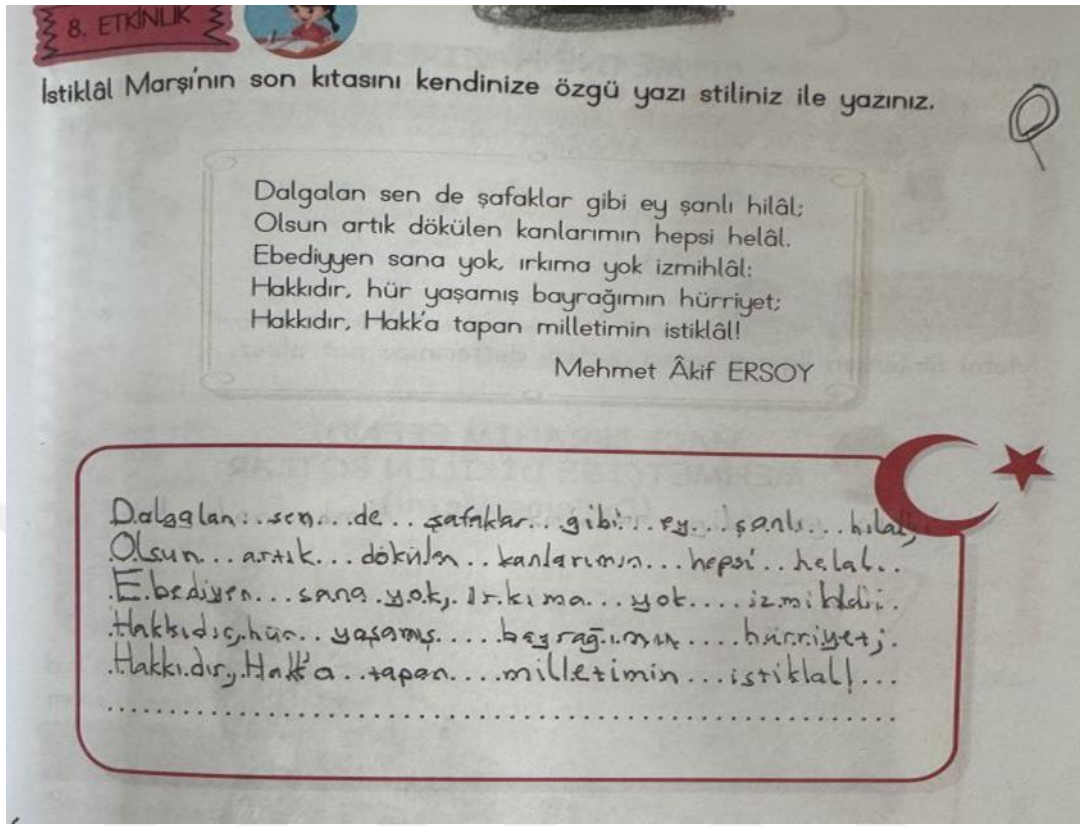 8. ETKİNLİK
İstiklâl Marşı'nın son kıtasını kendinize özgü yazı stiliniz ile yazınız.
Dalgalan sen de şafaklar gibi ey şanlı hilâl;
Olsun artık dökülen kanlarımın hepsi helâl.
Ebediyyen sana yok, ırkıma yok izmihlâl:
Hakkıdır, hür yaşamış bayrağımın hürriyet;
Hakkıdır, Hakk'a tapan milletimin istiklâl!
Mehmet Âkif ERSOY
Dalgalan sen de şafaklar gibi ey şanlı hilal;
Olsun artık dökülen kanlarımın hepsi helal.
Ebediyen sana yok, Irkıma yok
Hakkıdır, hür yaşamış bayrağımın hürriyet;
Hakkıdır, Hakk'a tapan milletimin istiklal!